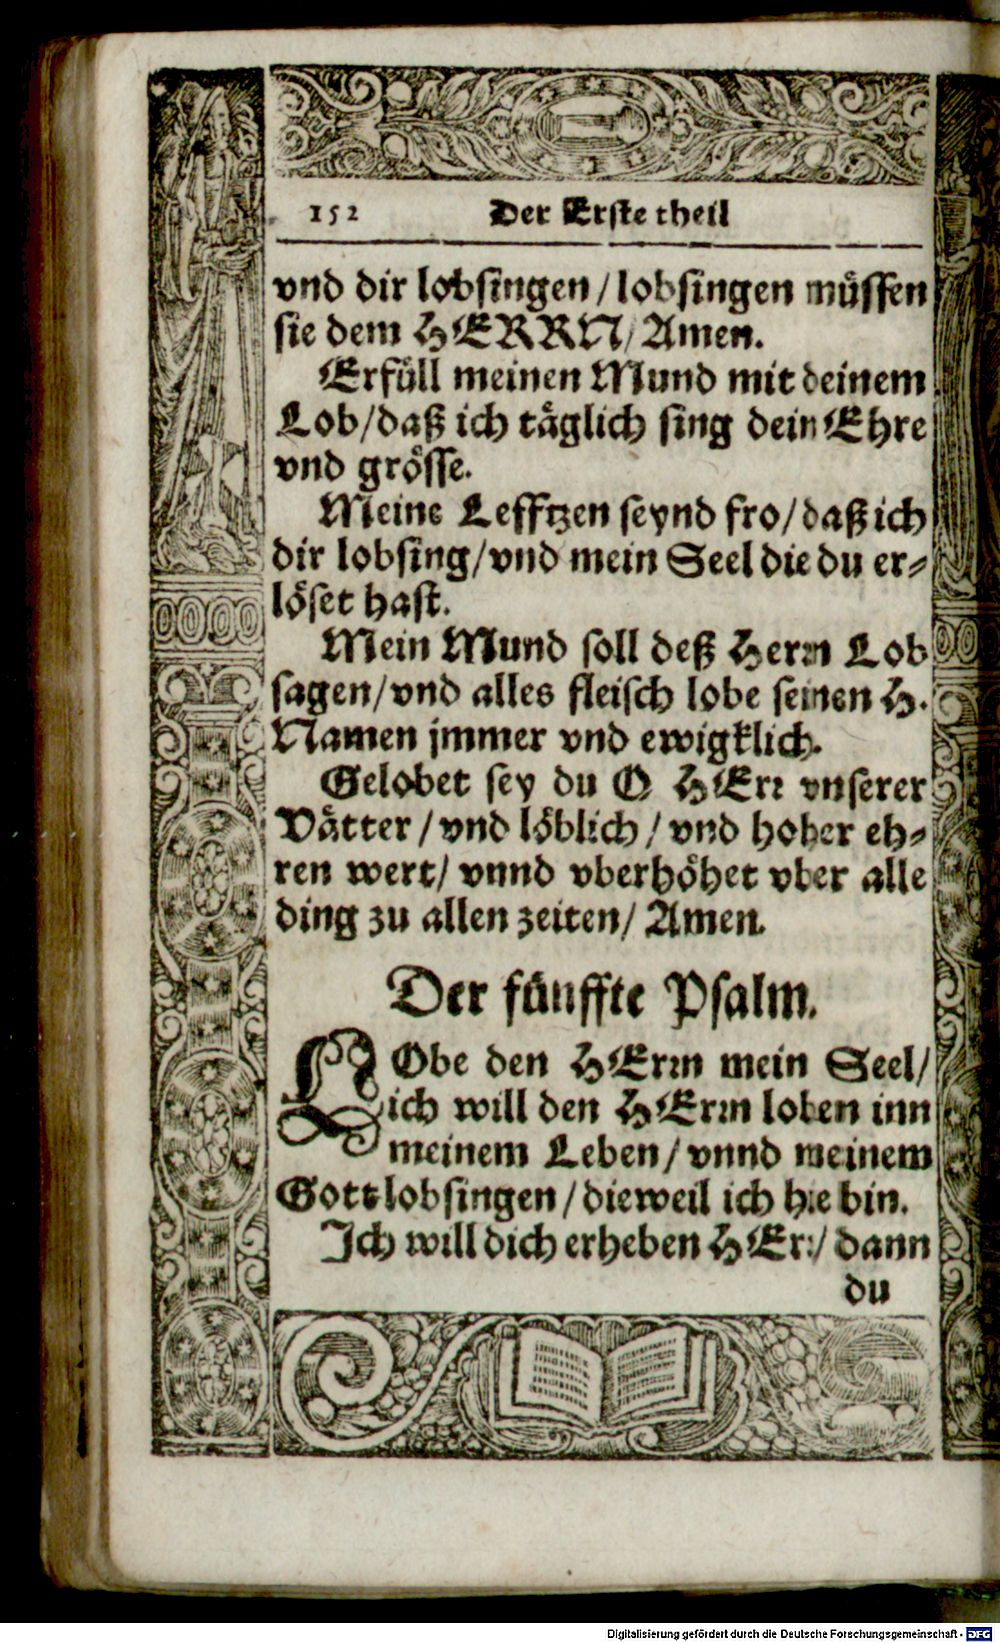 152 Der Erste theil
vnd dir lobsingen / lobsingen müssen
sie dem HERRN / Amen.
Erfüll meinen Mund mit deinem
Lob / daß ich täglich sing dein Ehre
vnd grösse.
Meine Lefftzen seynd fro / daß ich
dir lobsing / vnd mein Seel die du er-
löset hast.
Mein Mund soll deß Herrn Lob
sagen / vnd alles fleisch lobe seinen H.
Namen jmmer vnd ewigklich.
Gelobet sey du O HErr vnserer
Vätter / vnd löblich / vnd hoher eh-
ren wert / vnnd vberhöhet vber alle
ding zu allen zeiten / Amen.
Der fünffte Psalm.
LObe den HErrn mein Seel /
ich will den HErrn loben inn
meinem Leben / vnnd meinem
Gott lobsingen / dieweil ich hie bin.
Ich will dich erheben HErr / dann
du
Digitalisierung gefördert durch die Deutsche Forschungsgemeinschaft - DFG